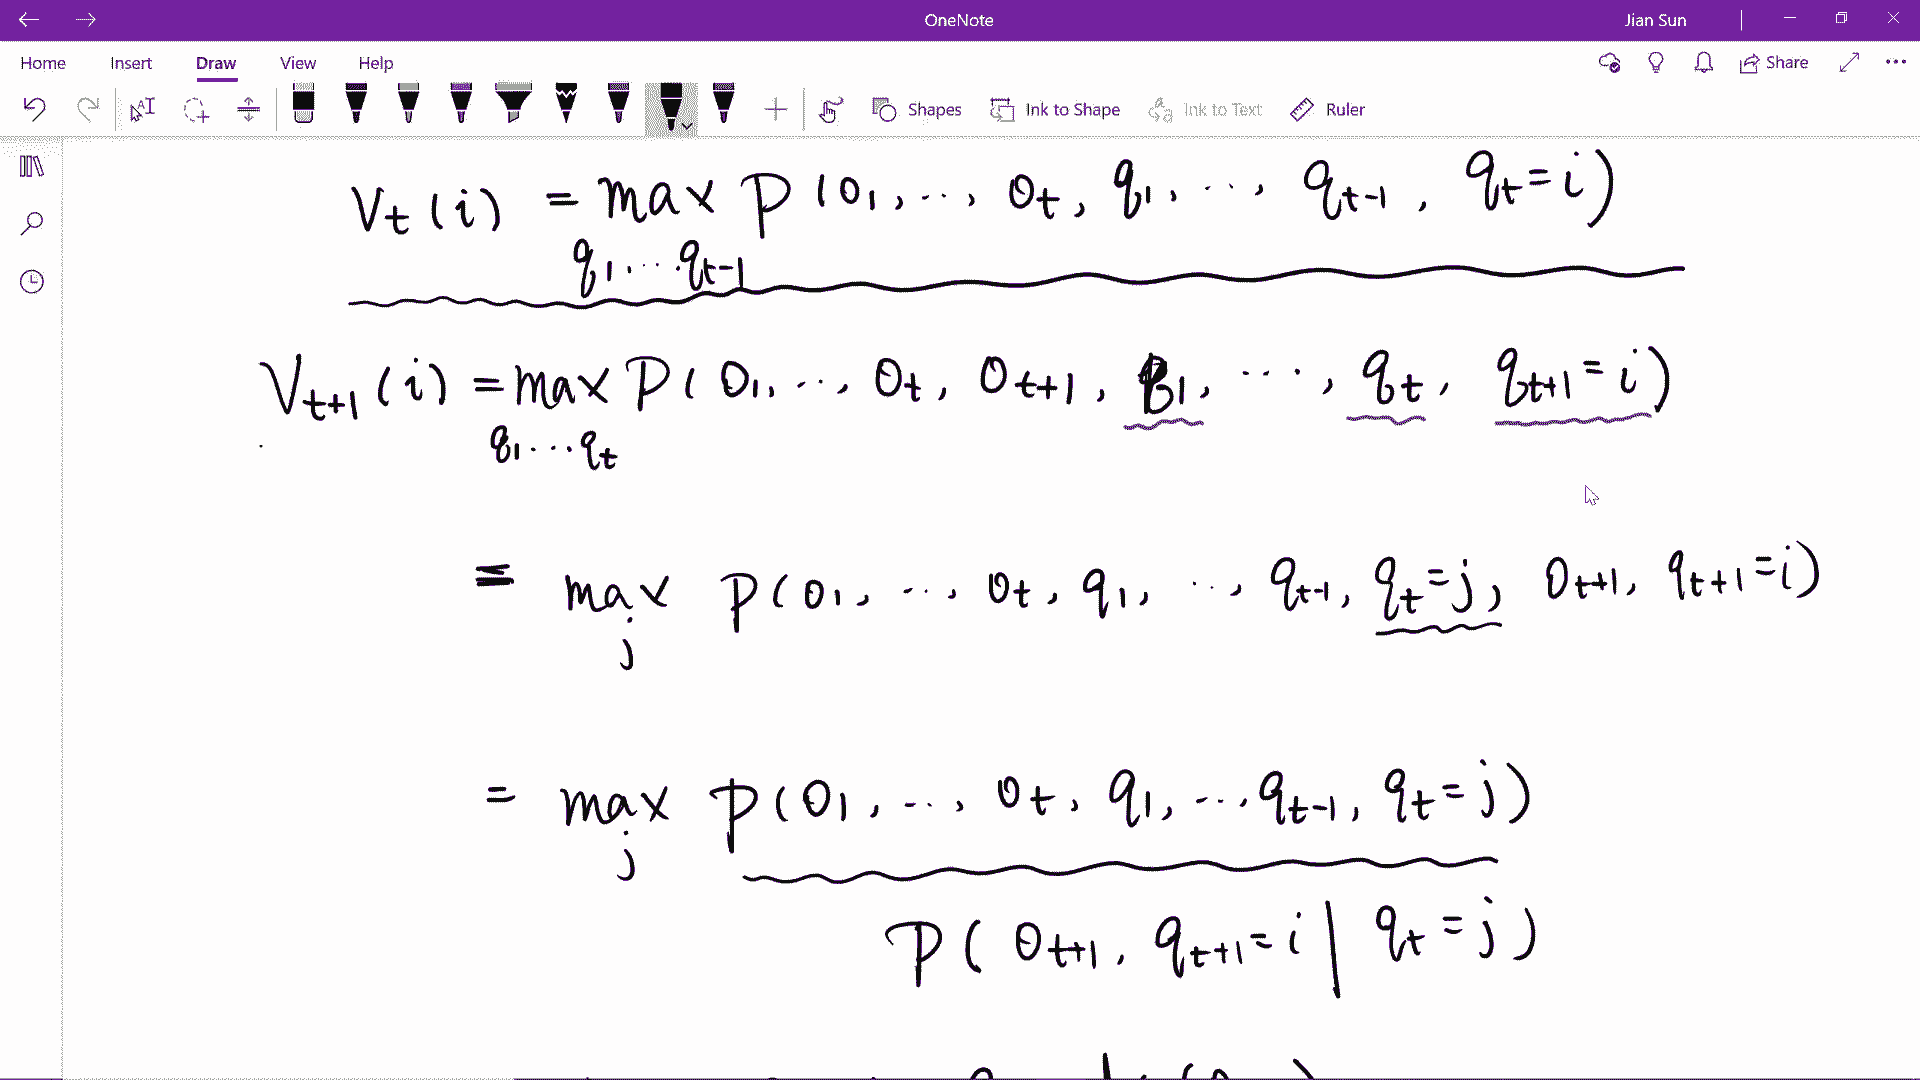 OneNote
Jian Sun
Home Insert Draw View Help
Share
Shapes Ink to Shape Ink to Text Ruler
V_t(i) = max P(O_1, ..., O_t, q_1, ..., q_{t-1}, q_t = i)
q_1 ... q_{t-1}
V_{t+1}(i) = max P(O_1, ..., O_t, O_{t+1}, q_1, ..., q_t, q_{t+1} = i)
q_1 ... q_t
= max P(O_1, ..., O_t, q_1, ..., q_{t-1}, q_t = j, O_{t+1}, q_{t+1} = i)
j
= max P(O_1, ..., O_t, q_1, ... q_{t-1}, q_t = j)
j
P(O_{t+1}, q_{t+1} = i | q_t = j)